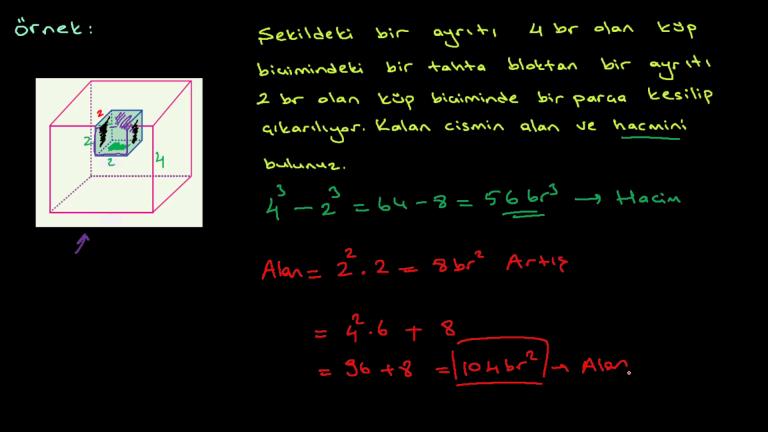 Örnek:
Şekildeki bir ayrıtı 4 br olan küp
biçimindeki bir tahta bloktan bir ayrıtı
2 br olan küp biçiminde bir parça kesilip
çıkarılıyor. Kalan cismin alan ve hacmini
bulunuz.
2
2
2
4
4³ - 2³ = 64 - 8 = 56 br³ → Hacim
Alan = 2² . 2 = 8 br² Artış
= 4² . 6 + 8
= 96 + 8 = 104 br² → Alan